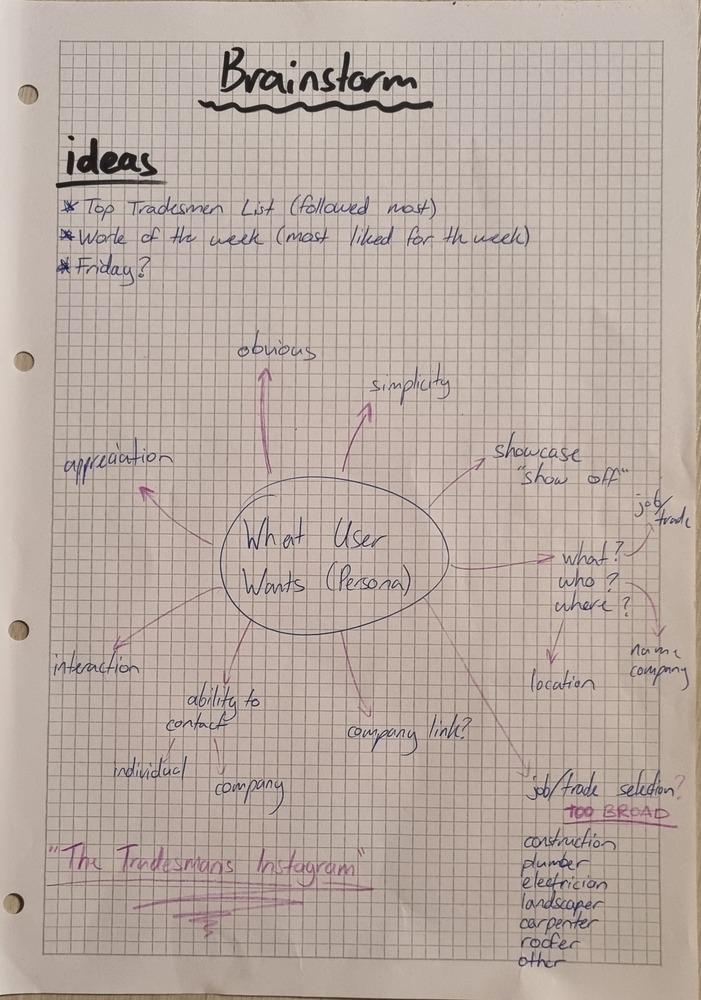 Brainstorm
ideas
* Top Tradesmen List (followed most)
* Work of the week (most liked for th week)
* Friday?
obvious
simplicity
appreciation
showcase
"show off"
job/
trade
What User
Wants (Persona)
what?
who?
where?
name
company
location
interaction
ability to
contact
individual
company
company link?
job/trade selection?
TOO BROAD
construction
plumber
electrician
landscaper
carpenter
roofer
other
"The Tradesmans Instagram"